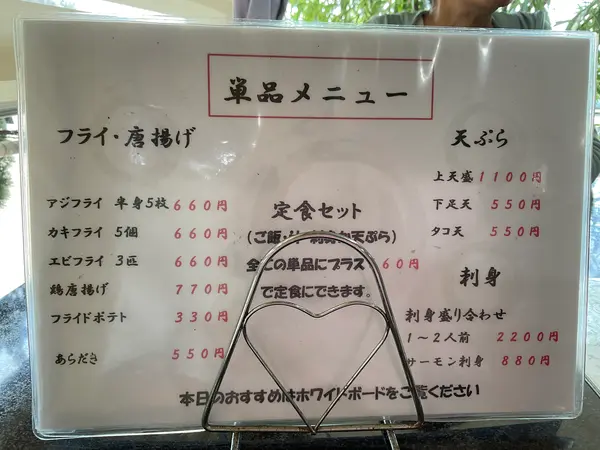 単品メニュー
フライ・唐揚げ
アジフライ 半身5枚 660円
カキフライ 5個 660円
エビフライ 3匹 660円
鶏唐揚げ 770円
フライドポテト 330円
あらだき 550円
定食セット
全ての単品にプラス 60円
で定食にできます。
天ぷら
上天盛 1100円
下足天 550円
タコ天 550円
刺身
刺身盛り合わせ
1~2人前 2200円
サーモン刺身 880円
本日のおすすめはホワイトボードをご覧ください